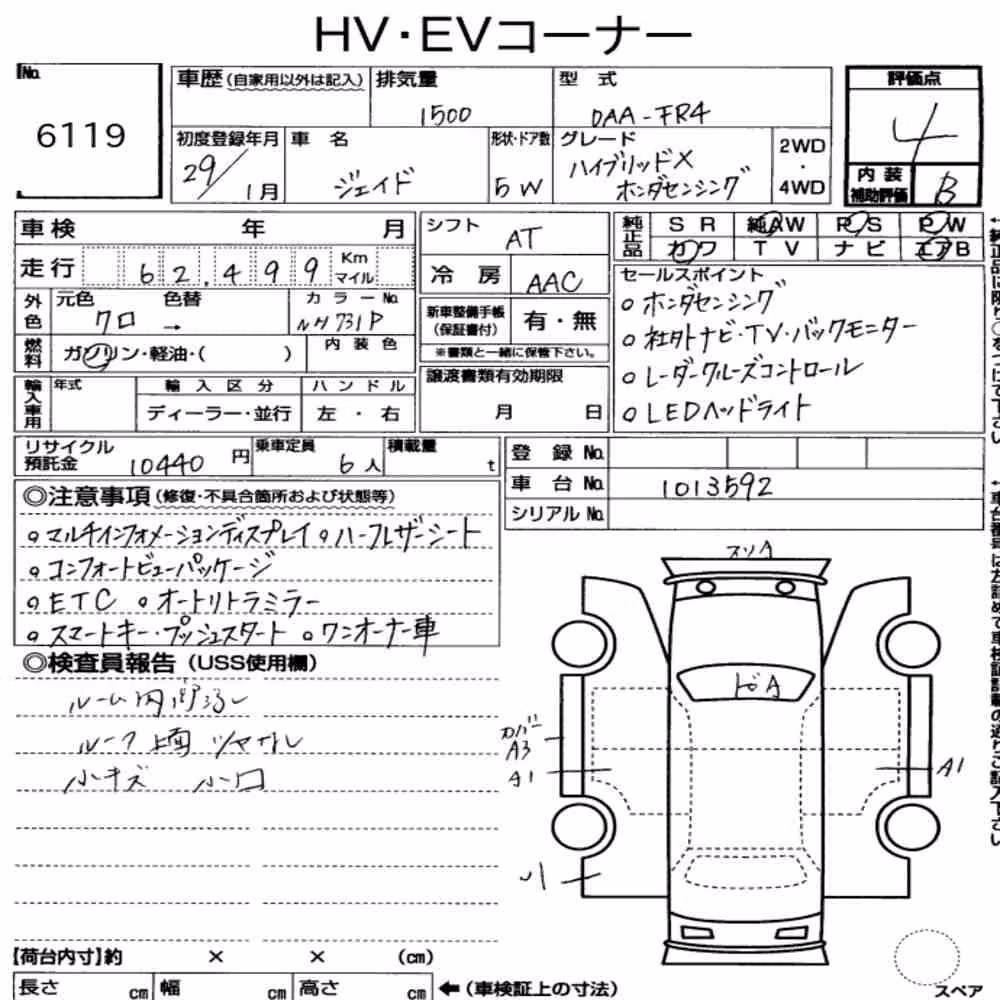 HV・EVコーナー
No.
6119
車歴(自家用以外は記入)
排気量
1500
型式
DAA-FR4
評価点
4
初度登録年月
29/1月
車名
ジェイド
形状・ドア数
5W
グレード
ハイブリッドX
ホンダセンシング
2WD
・
4WD
内装
補助評価
B
車検 年 月
走行 62,499 Km マイル
シフト
AT
冷房
AAC
純正品
SR 純AW PS PW
カワ TV ナビ エアB
外色
元色 色替
クロ →
カラーNo.
NH731P
燃料
ガソリン・軽油・( )
内装色
新車整備手帳
(保証書付)
有・無
※書類と一緒に保管下さい。
セールスポイント
○ホンダセンシング
○社外ナビ・TV・バックモニター
○レーダークルーズコントロール
○LEDヘッドライト
輸入車用
年式
輸入区分
ディーラー・並行
ハンドル
左・右
譲渡書類有効期限
月 日
リサイクル
預託金
10440円
乗車定員
6人
積載量
t
登録No.
車台No.
1013592
シリアルNo.
◎注意事項(修復・不具合箇所および状態等)
○マルチインフォメーションディスプレイ ○ハーフレザーシート
○コンフォートビューパッケージ
○ETC ○オートリトラミラー
○スマートキー・プッシュスタート ○ワンオーナー車
◎検査員報告(USS使用欄)
ルーフ上面 ツヤナシ
小キズ 小凹
スリA
カバー
A3
A1
A1
【荷台内寸】約 × × (cm)
長さ cm 幅 cm 高さ cm
←(車検証上の寸法)
スペア